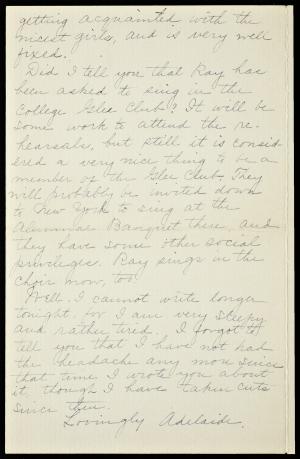 getting acquainted with the
nicest girls, and is very well
fixed.
Did I tell you that Ray has
been asked to sing in the
College Glee Club? It will be
some work to attend the re-
hearsals, but still it is consid-
ered a very nice thing to be a
member of the Glee Club. They
will probably be invited down
to New York to sing at the
Alumnae Banquet there, and
they have some other social
privileges. Ray sings in the
Choir now, too.
Well I cannot write longer
tonight, for I am very sleepy
and rather tired. I forgot to
tell you that I have not had
the headache any more since
that time I wrote you about
it, though I have taken cuts
since then.
Lovingly Adelaide.